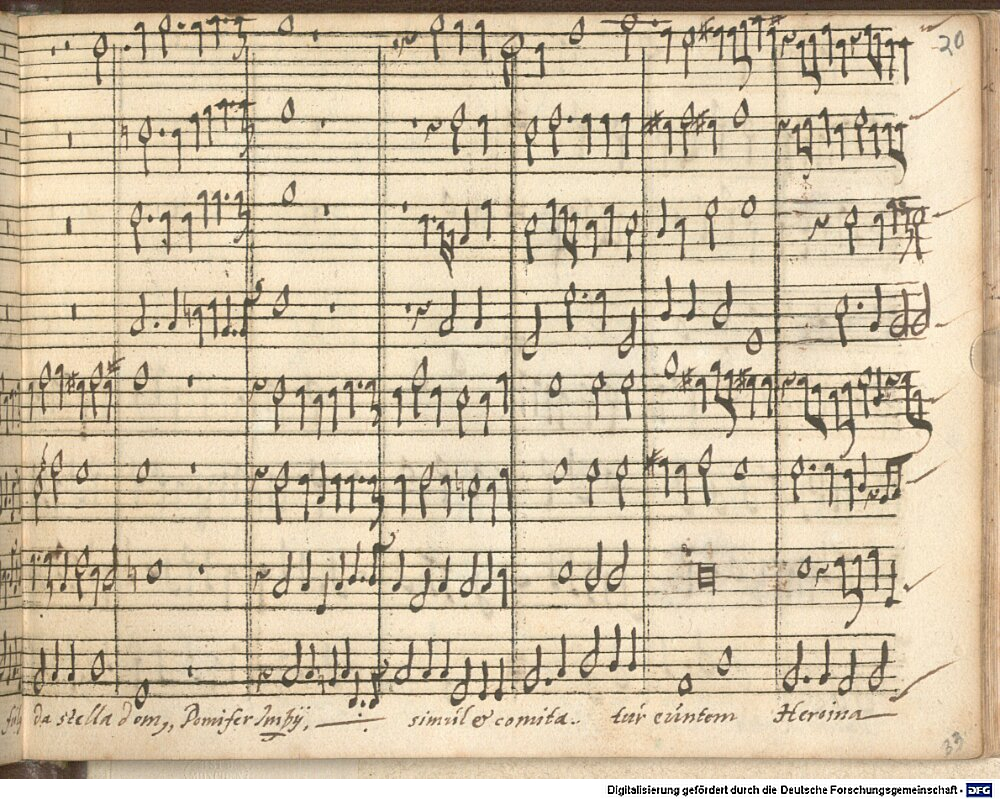 20
da stella dom,, Pomifer Impij, simul & comita. tur euntem Heroina
33
Digitalisierung gefördert durch die Deutsche Forschungsgemeinschaft - DFG